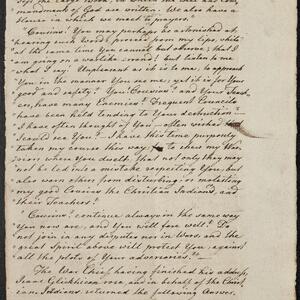 says the Large Book, in which the will and com-
mandments of God are written. We also have a
House in which we meet to prayer."
"Cousins! You may perhaps be astonished at
hearing such words proceed from my lips, while
at the same time You cannot but observe, that I
am going on a warlike road! but listen to me
what I say. Unpleasant as it is to me, to approach
You in the manner You see me, yet it is for Your
good and safety? You Cousins! and Your Teach-
er, have many Enemies! Frequent Councils
have been held tending to Your destruction—
I have often thought of You! often wished that
I could see You! I have this time purposely
taken my course this way, to shew my War-
riors where You dwell, that not only they may
not be led into a mistake respecting You, but
also warn others from disturbing, or molesting
my good Cousins the Christian Indians, and
their Teachers!
Cousins! continue always in the same way
You now are, and You will fare well! Do
not join in any dispute nor in Wars and the
great Spirit above will protect You against
all the plots of Your adversaries."—
The War Chief having finished his address,
Isaac Glickhican rose, and in behalf of the Christ-
ian Indians, returned the following Answer